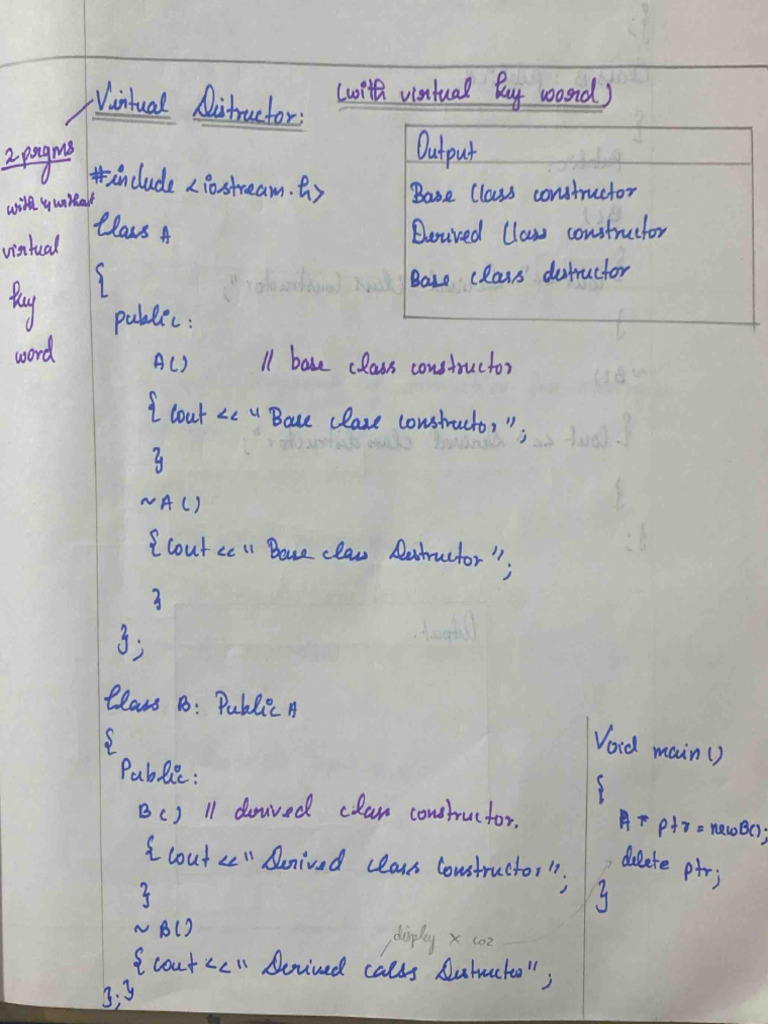 Virtual Distructor: (with virtual key word)
2 prgms
with & without
virtual
key
word
Output
Base Class constructor
Derived Class constructor
Base class destructor
#include <iostream.h>
Class A
{
public:
A() // base class constructor
{ cout << "Base clase constructor";
}
~A()
{ cout << "Base class Destructor";
}
};
Class B: Public A
{
Public:
B() // derived class constructor.
{ cout << "Derived class Constructor";
}
~B()
{ cout << "Derived calss Destructor";
};}
display x coz
Void main()
{
A * ptr = new B();
delete ptr;
}